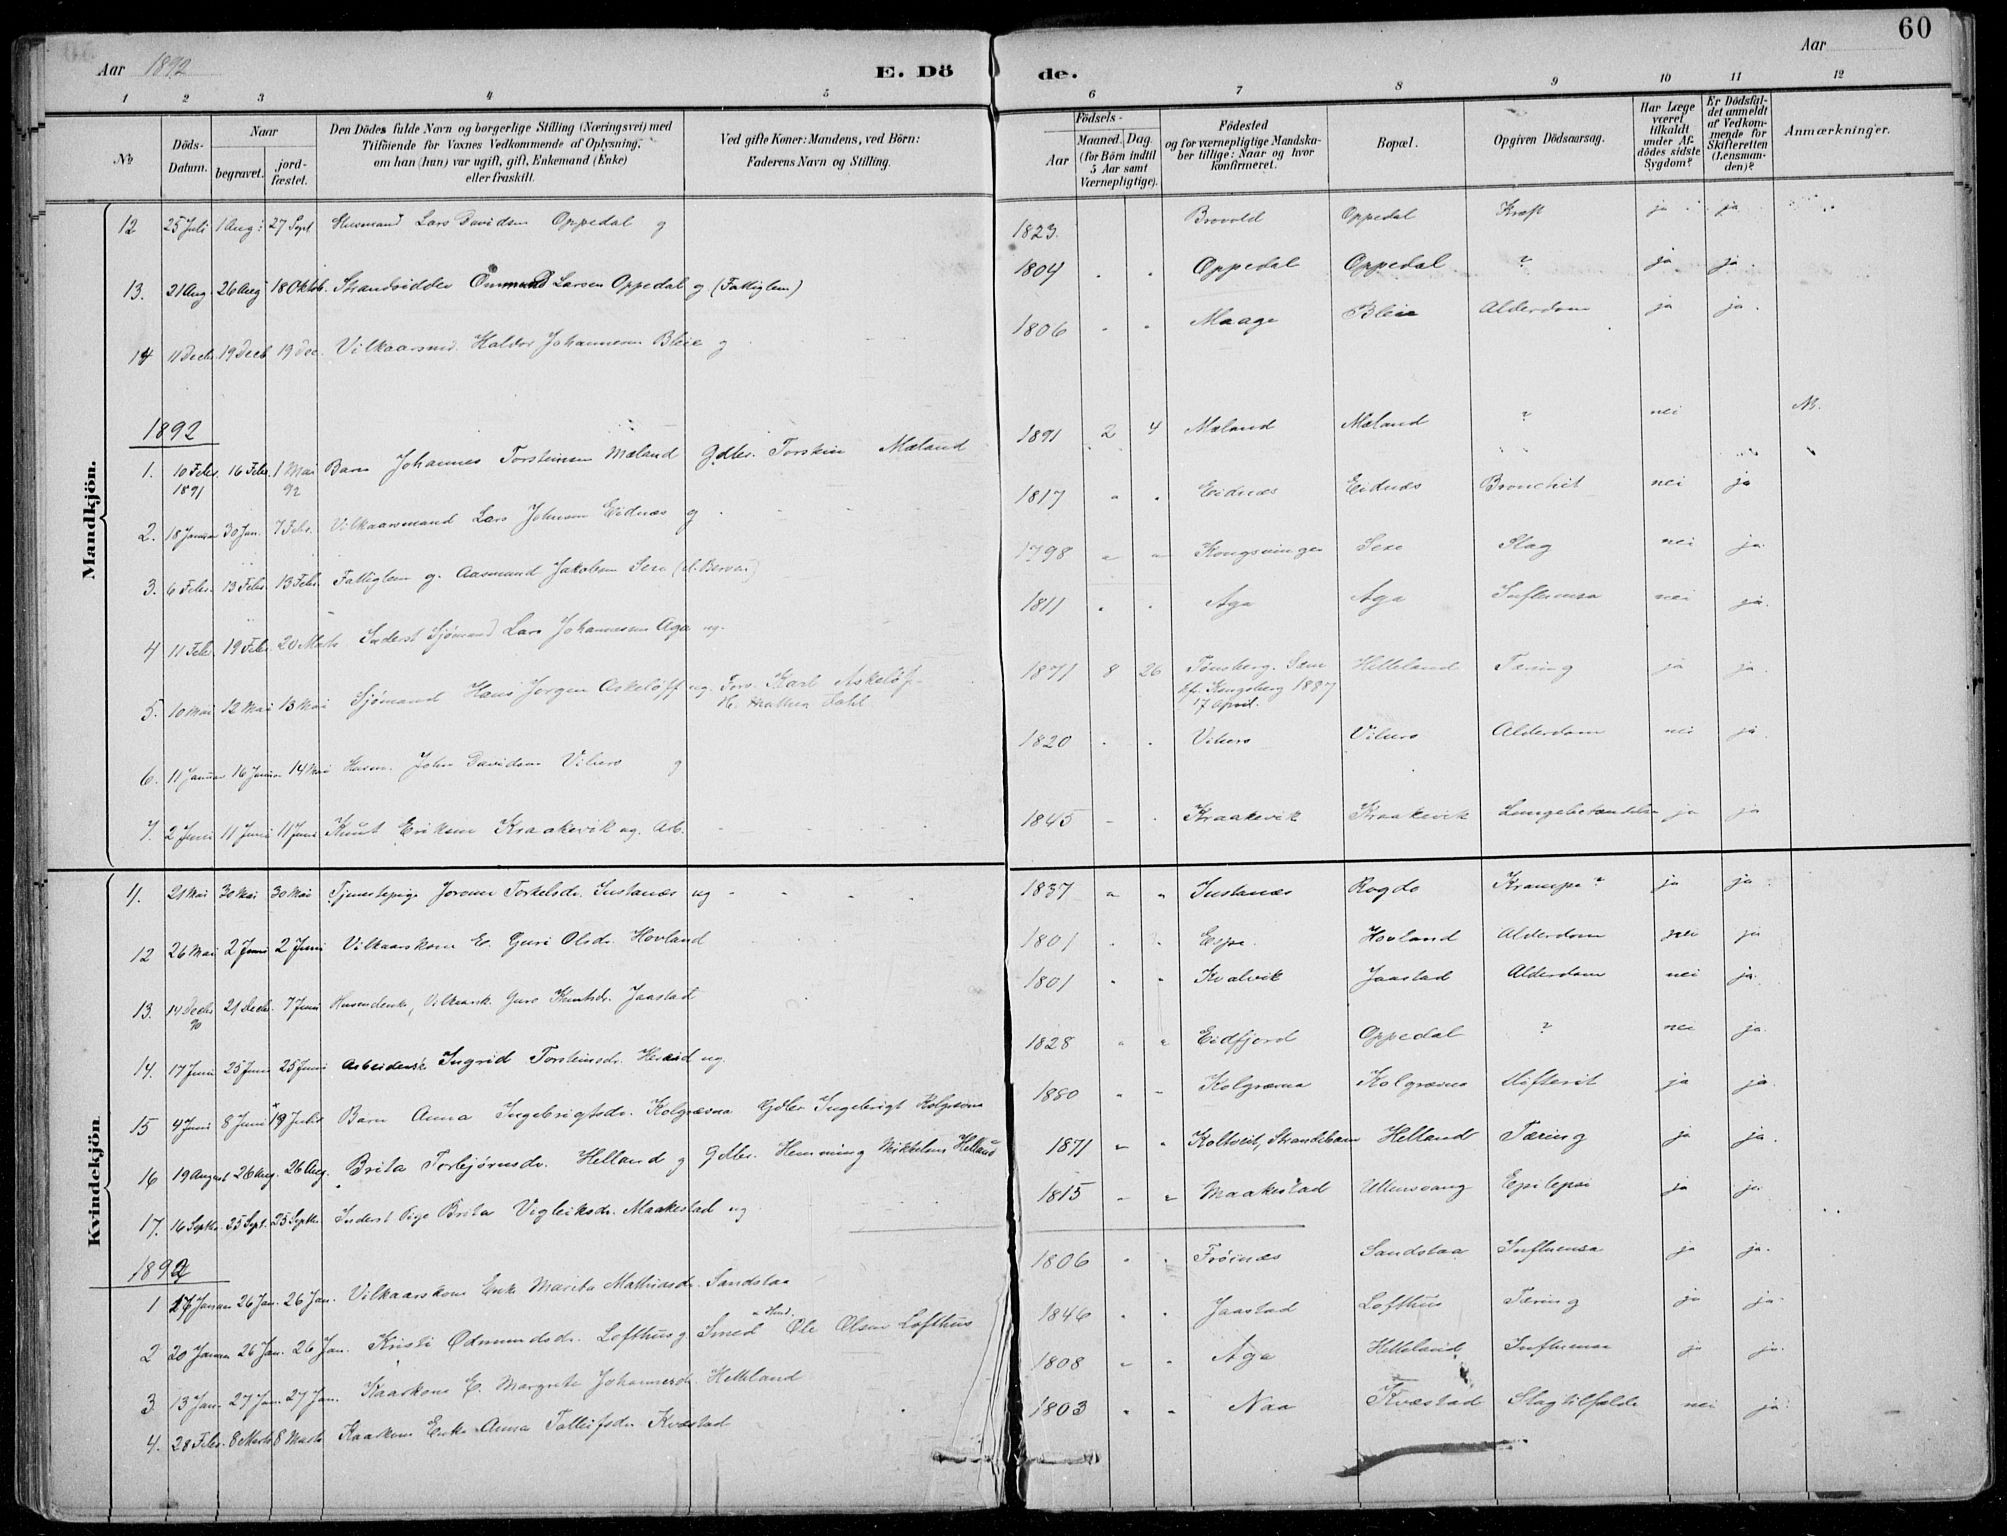 60
Aar 1892 E. Dö de. Aar
1 2 3 4 5 6 7 8 9 10 11 12
No
Döds-Datum.
Naar
begravet.
jord-fæstet.
Den Dödes fulde Navn og borgerlige Stilling (Næringsvei) med
Tilföiende for Voxnes Vedkommende af Oplysning,
om han (hun) var ugift, gift, Enkemand (Enke)
eller fraskilt.
Ved gifte Koner: Mandens, ved Börn:
Faderens Navn og Stilling.
Födsels-
Aar
Maaned. Dag.
(for Börn indtil
5 Aar samt
Værnepligtige).
Födested
og for værnepligtige Mandska-
ber tillige: Naar og hvor
konfirmeret.
Bopæl.
Opgiven Dödsaarsag.
Har Læge
været
tilkaldt
under Af-
dödes sidste
Sygdom?
Er Dödsfal-
det anmeldt
af Vedkom-
mende for
Skifteretten
(Lensman-
den)?
Anmærkninger.
Mandkjön.
12 25 Juli 1 Aug: 27 Sept Husmand Lars Davidsen Oppedal g 1823. Brovold Oppedal Kræft ja ja
13. 21 Aug. 26 Aug 18 Oktob. Strandsidder Ommund Larsen Oppedal g (Fattiglem) 1804 " " Oppedal Oppedal ? ja ja.
14 11 Decbr. 19 Decb 19 Dec. Vilkaarsmd. Haldor Johannesen Bleie g 1806 " " Maage Bleie Alderdom ja ja.
1892
1. 10 Febr. 1891 16 Febr. 1 Mai 92 Barn Johannes Torsteinsen Mæland Gdbr. Torstein Mæland 1891 2 4 Mæland Mæland ? nei
2. 18 Januar 30 Jan. 7 Febr. Vilkaarsmand Lars Johnsen Eidnæs g 1817 " " Eidnæs Eidnæs Bronchit nei ja
3. 6 Febr. 13 Febr. 13 Febr. Fattiglem g. Aasmund Jakobsen Sexe 1798 " " Kongsvinger Sexe Slag nei ja.
4 11 Febr. 19 Febr. 20 Marts Inderst Sjømand Lars Johannessen Aga ug. 1811 " " Aga Aga Influensa nei ja.
5. 10 Mai 12 Mai 13 Mai Sjømand Hans Jørgen Askeløff ug. Karl Askeløf 1871 8 26 Tønsberg. Sem Helleland Tæring ja ja.
Kongsberg 1887
17 April.
6. 11 Januar 16 Januar 14 Mai Husm. John Davidsen Vikers g 1820 " " Vikers Vikers Alderdom nei ja.
7. 2 Juni 11 Juni 11 Juni Knut Eriksen Kraakevik ug. Arb. 1845 " " Kraakevik Kraakevik Lungebetændelse ja ja
Kvindekjön
11. 21 Mai 30 Mai 30 Mai Tjenestepige Torkelsdr. Instanæs ug 1837 " " Instanæs Rogde Krampe ? ja ja.
12 26 Mai 2 Juni 2 Juni Vilkaarskone E. Guri Olsdr. Hovland 1801 " " Espe. Hovland Alderdom nei ja
13. 14 Decbr. 90 21 Decbr. 7 Juni Guro Knutsdr. Jaastad 1801 " " Kvalvik Jaastad Alderdom nei ja.
14. 17 Juni 25 Juni 25 Juni Arbeiderske Ingrid Torsteinsdr. Heraid ug. 1828 " " Eidfjord Oppedal ? nei ja.
15 4 Juni 8 Juni 19 Julii Barn Anna Ingebrigtsdr. Kolgrævna Gdbr Ingebrigt Kolgrævna 1880 " " Kolgrævna Kolgrævna Difterit ja ja.
16 19 August 26 Aug. 26 Aug. Brita Torbjørnsdr. Helland g Gdbr. Hemming Mikkelsen Helland 1871 " " Koltveit, Strandebarm Helland Tæring ja ja.
17. 16 Septbr. 25 Sept. 25 Septbr Inderst Pige Brita Vigleiksdr. Maakestad ug 1815 " " Maakestad Ullensvang Epilepsi ja ja.
1892
1 17 Januar 26 Jan. 26 Jan. Vilkaarskone Enke Marita Mathiasdr. Sandstaa 1806 " " Frøinæs Sandstaa Influensa ja ja.
2 20 Januar 26 Jan. 26 Jan. Kristi Ødmundsdr. Lofthus g Smed Ole Olsen Lofthus 1846 " " Jaastad Lofthus Tæring ja ja.
3 13 Jan. 27 Jan. 27 Jan. Kaarkone E. Margrete Johannesdr. Helleland 1808 " " Aga Helleland Influensa ja ja.
4. 28 Febr. 8 Marts 8 Marts Kaarkone Enke Anna Tolleifsdr Kvæstad 1803 " " Naa Kvæstad Slagtilfælde nei ja.